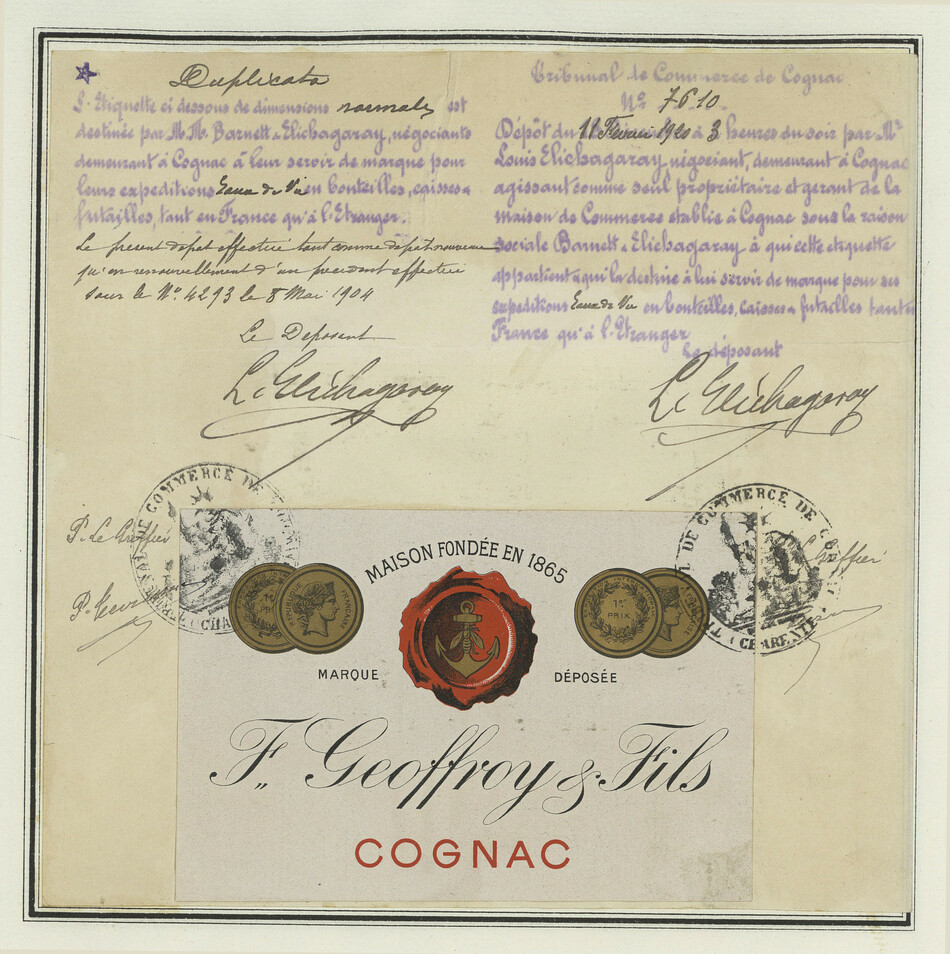 Duplicata
L'Etiquette ci dessous de dimensions normales est
destinée par M.M. Barnett & Elichagaray, négociants
demeurant à Cognac à leur servir de marque pour
leurs expeditions Eaux de Vie en bouteilles, caisses &
futailles, tant en France qu'à l'Etranger.
Le présent dépôt effectué tant comme dépôt nouveau
qu'en renouvellement d'un précédent effectué
sous le No. 4293 le 8 Mai 1904
Le Deposant
L. Elichagaray
Tribunal de Commerce de Cognac
No 7610
Dépôt du 11 Février 1920 à 3 heures du soir par Mr
Louis Elichagaray négociant, demeurant à Cognac
agissant comme seul propriétaire et gerant de la
maison de Commerce établie à Cognac sous la raison
sociale Barnett & Elichagaray à qui cette etiquette
appartient & qui la destine à lui servir de marque pour ses
expeditions Eaux de Vie en bouteilles, caisses & futailles tant en
France qu'à l'Etranger
Le déposant
L. Elichagaray
COMMERCE DE
P. Le Greffier
CHA
DE COMMERCE DE
Greffier
CHARENTE
MAISON FONDÉE EN 1865
1er PRIX
MARQUE DÉPOSÉE
F. Geoffroy & Fils
COGNAC